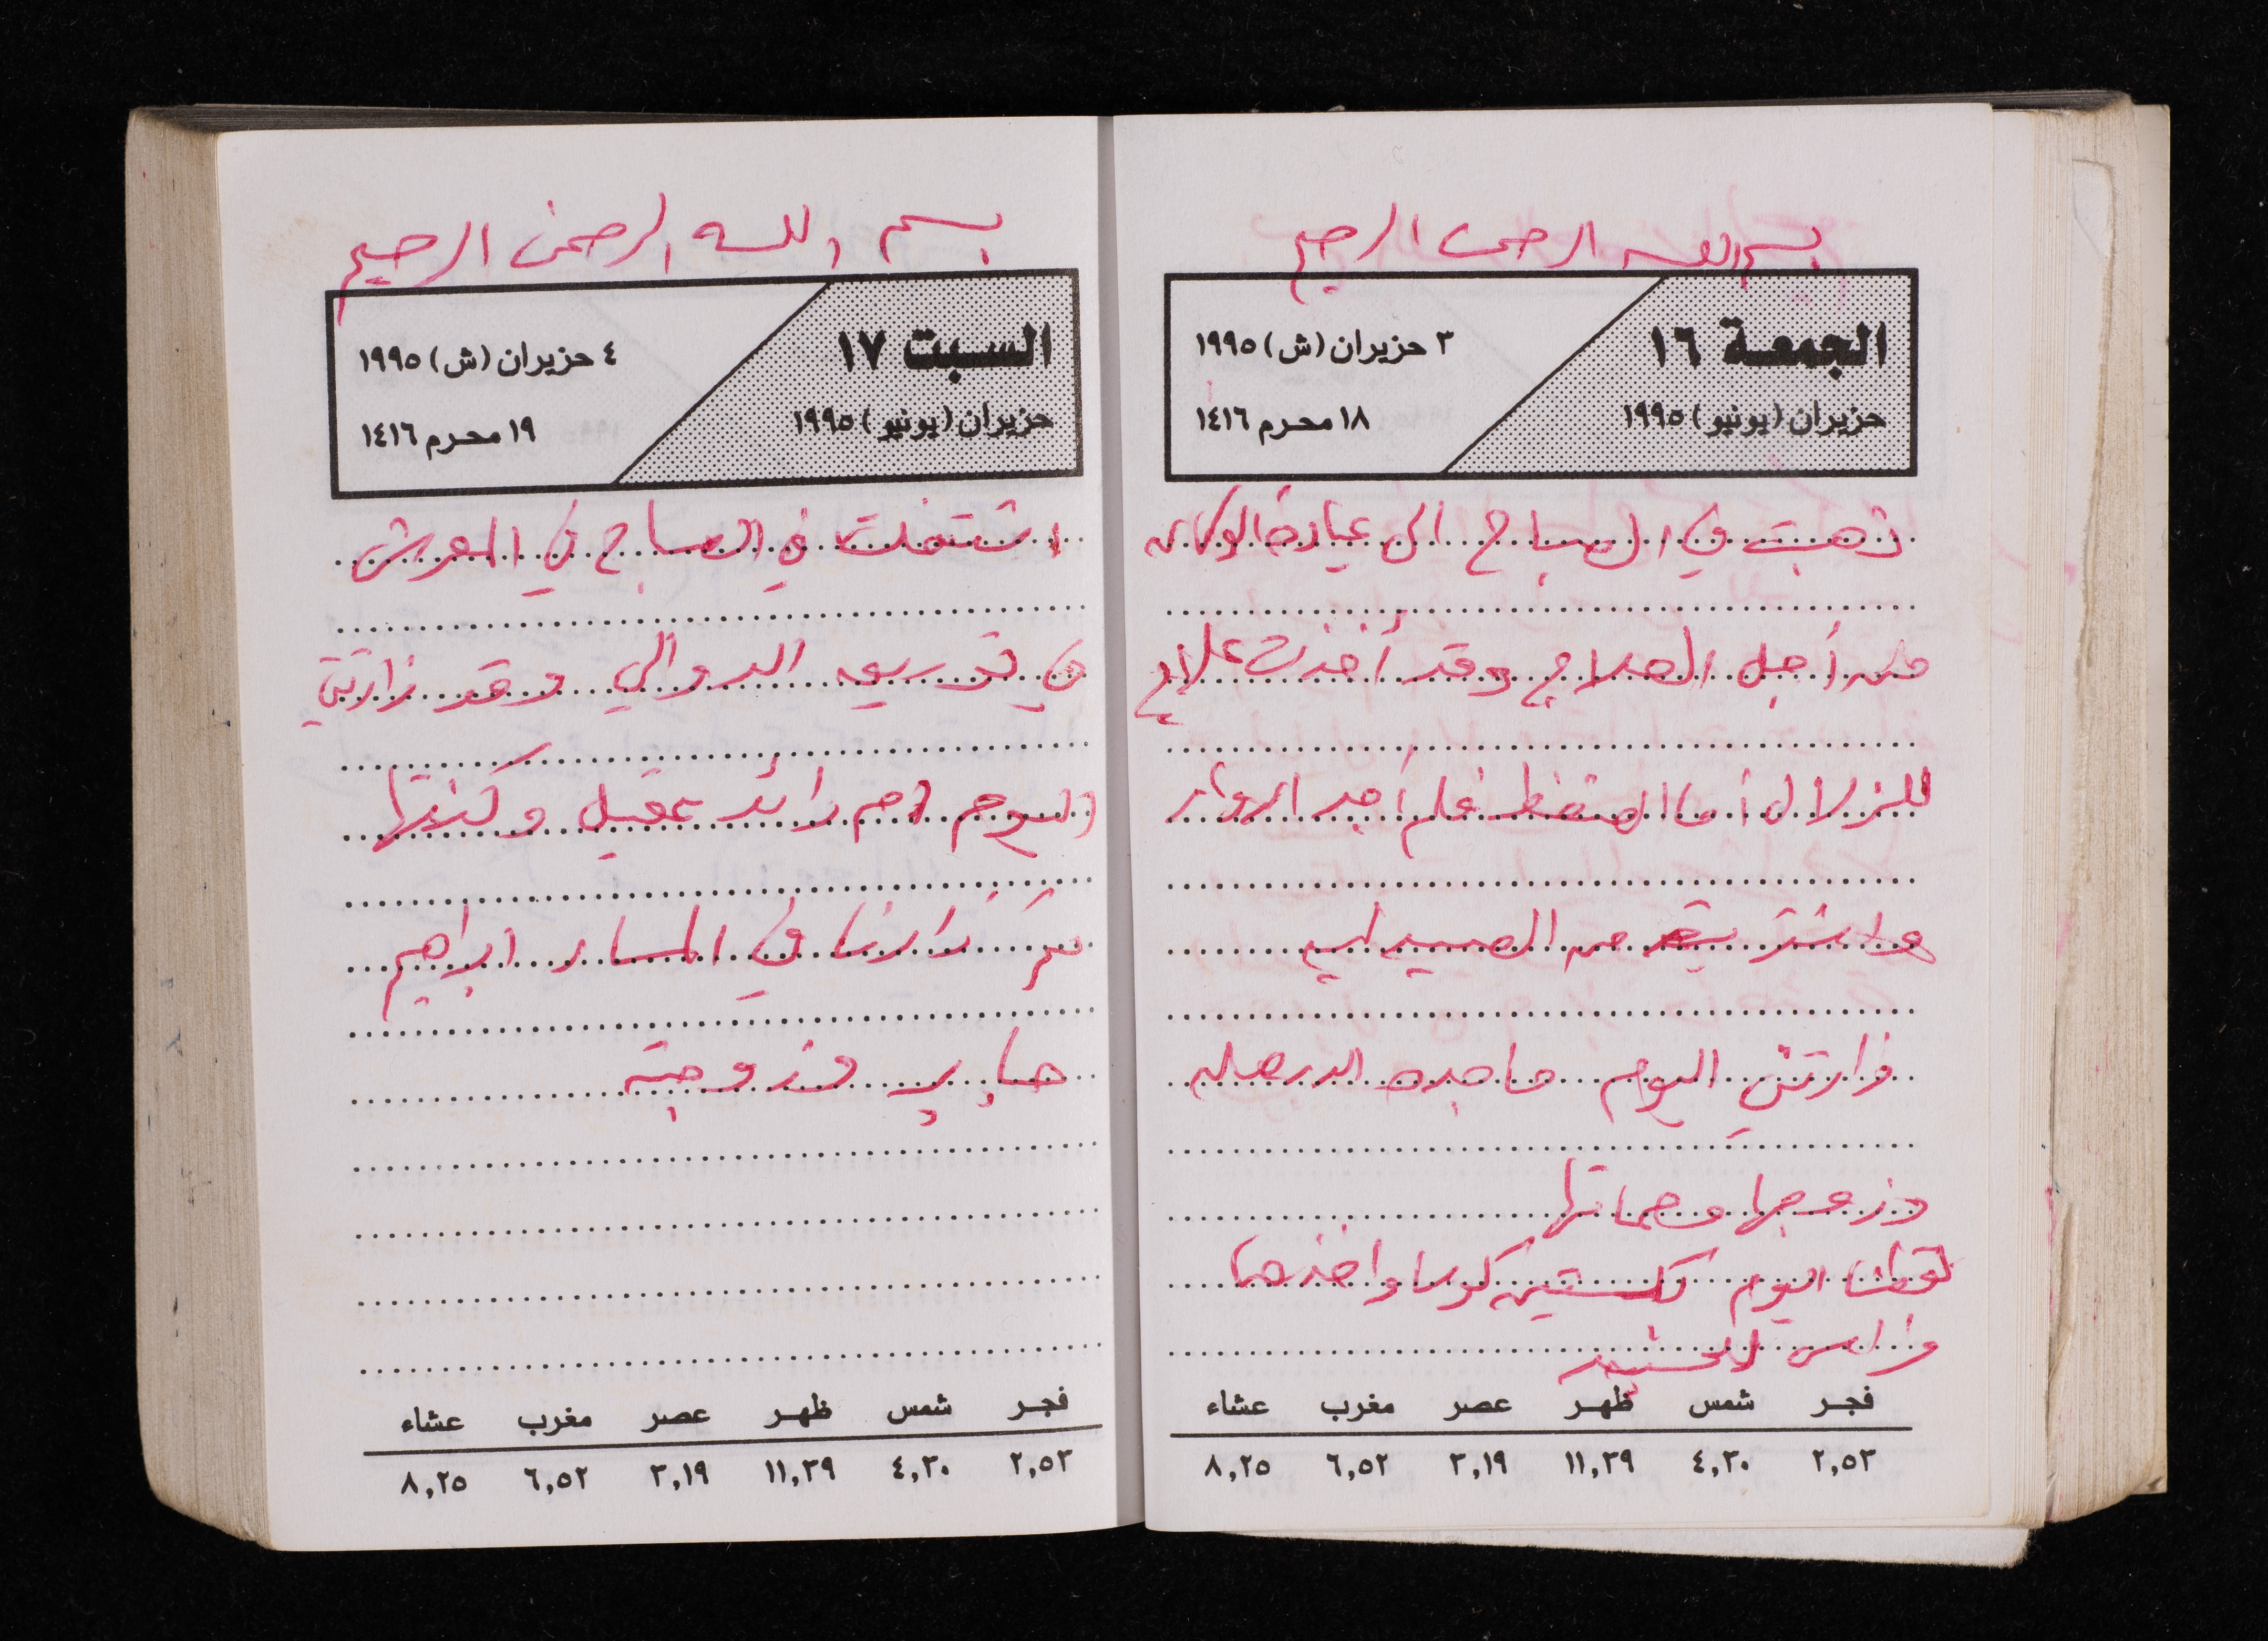 بسم الله الرحمن الرحيم
الجمعة ١٦
حزيران (يونيو) ١٩٩٥
٣ حزيران (ش) ١٩٩٥
١٨ محرم ١٤١٦
ذهبت في الصباح الى عيادة الوكاله
من أجل العلاج وقد أخذت علاج
للزلال أما الضغط فلم أجد الدواء
واشتريته من الصيدليه
زارتني اليوم ماجده
وزوجها وحماتها
قطفنا اليوم كوسا واخذهما
فراس
فجر شمس ظهر عصر مغرب عشاء
٢,٥٣ ٤,٣٠ ١١,٣٩ ٣,١٩ ٦,٥٢ ٨,٢٥
بسم الله الرحمن الرحيم
السبت ١٧
حزيران (يونيو) ١٩٩٥
٤ حزيران (ش) ١٩٩٥
١٩ محرم ١٤١٦
اشتغلت في الصباح في المعرش
في توريق الدوالي وقد زارتني
اليوم ام رائد عقيل وكنتها
كم زارنا في المساء ابراهيم
صابر وزوجته
فجر شمس ظهر عصر مغرب عشاء
٢,٥٣ ٤,٣٠ ١١,٣٩ ٣,١٩ ٦,٥٢ ٨,٢٥